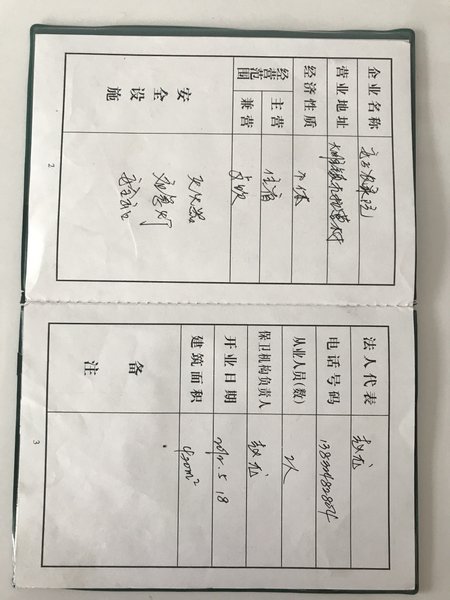 企业名称
营业地址
经济性质 个体
经营范围
主营 住宿
兼营 餐饮
安全设施
灭火器
应急灯
安全出口
2
法人代表 赵龙
电话号码
从业人员(数) 2人
保卫机构负责人 赵龙
开业日期 2012.5.18
建筑面积 430m²
备注
3